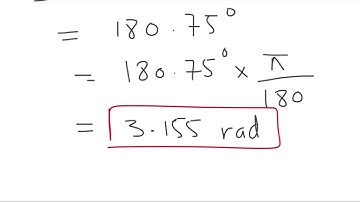 = 180.75°
= 180.75° × π/180
= 3.155 rad